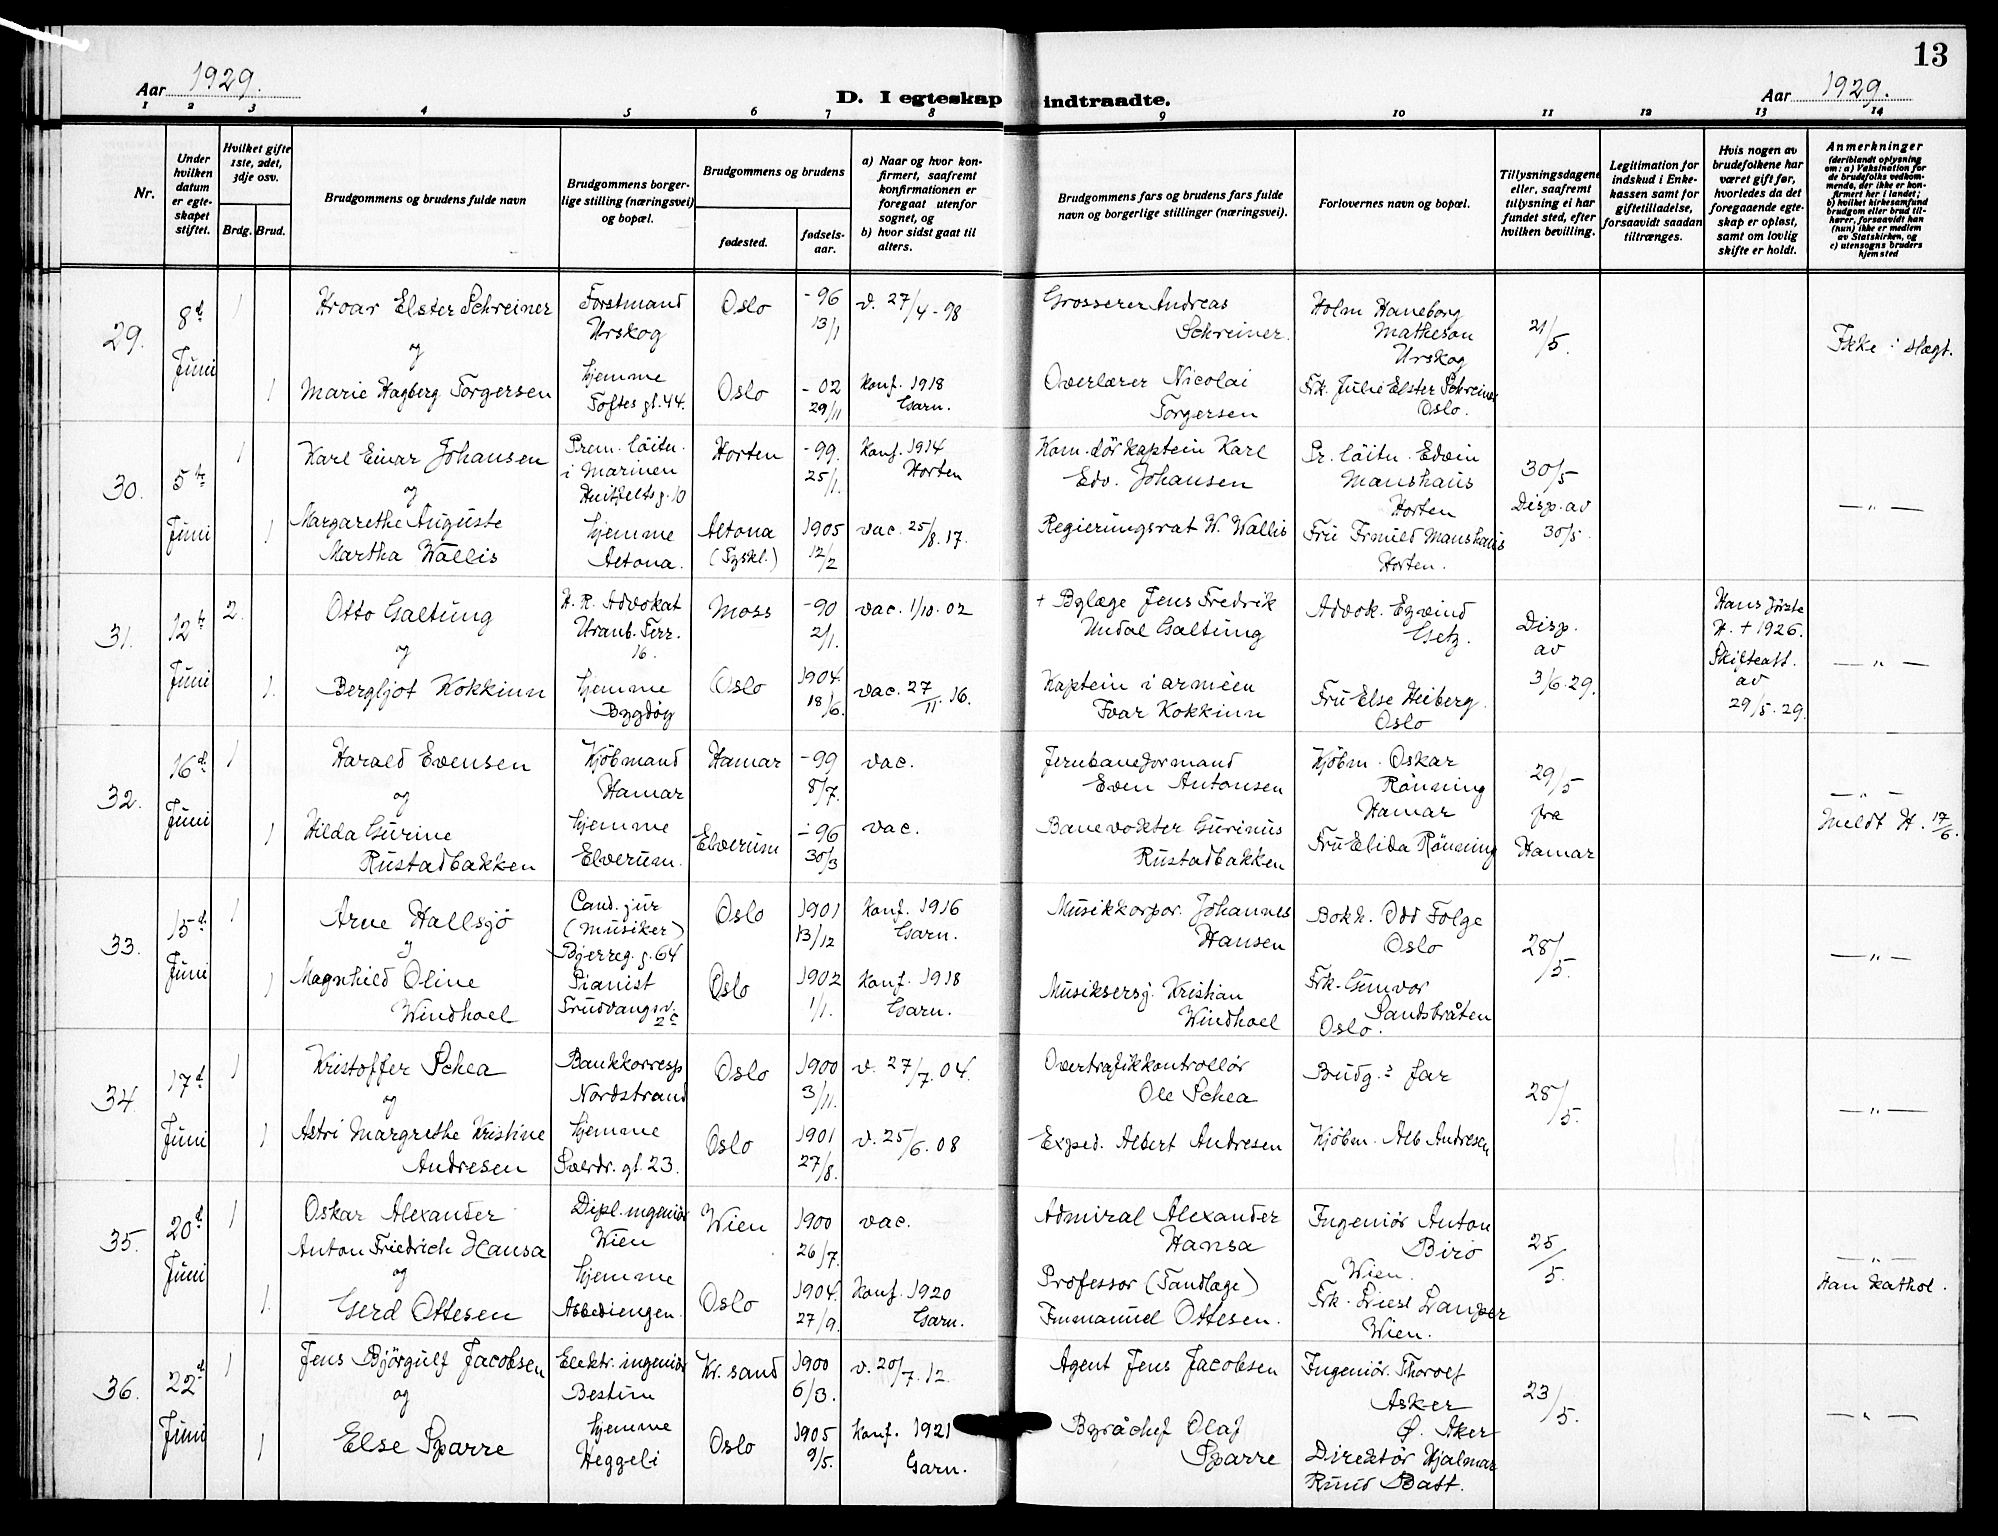 13
Aar 1929.
D. I egteskap indtraadte.
Aar 1929.
1 2 3 4 5 6 7 8 9 10 11 12 13 14
Nr.
Under hvilken datum er egteskapet stiftet.
Hvilket gifte 1ste, 2det, 3dje osv.
Brdg. Brud.
Brudgommens og brudens fulde navn
Brudgommens borgerlige stilling (næringsvei) og bopæl.
Brudgommens og brudens
fødested.
fødselsaar.
a) Naar og hvor konfirmert, saafremt konfirmationen er foregaat utenfor sognet, og
b) hvor sidst gaat til alters.
Brudgommens fars og brudens fars fulde navn og borgerlige stillinger (næringsvei).
Forlovernes navn og bopæl.
Tillysningsdagene eller, saafremt tillysning ei har fundet sted, efter hvilken bevilling.
Legitimation for indskud i Enkekassen samt for giftetilladelse, forsaavidt saadan tiltrænges.
Hvis nogen av brudefolkene har været gift før, hvorledes da det foregaaende egteskap er opløst, samt om lovlig skifte er holdt.
Anmerkninger
(deriblandt oplysning om: a) Vaksination for de brudefolks vedkommende, der ikke er konfirmert her i landet; b) hvilket kirkesamfund brudgom eller brud tilhører, forsaavidt han (hun) ikke er medlem av Statskirken, og c) utensogns bruders hjemsted
29. 8d Juni 1
Hroar Elster Schreiner
Forstmand Urskog
Oslo
-96 13/1
v. 27/4-98
Grosserer Andreas Schreiner.
Holm Haneborg Matheson Urskog
21/5.
Ikke i slegt.
og
1 Marie Hagberg Torgersen
hjemme Toftes gt. 44.
Oslo
-02 29/11
Konf. 1918 Garn.
Overlærer Nicolai Torgersen
Frk. Julie Elster Schreiner Oslo.
30. 5te Juni 1
Karl Einar Johansen
Prem. löitn. i Marinen Huitfeltsg. 10
Horten
-99. 25/1.
Konf. 1914 Horten
Kom.dörkaptein Karl Edv. Johansen
Pr. löitn. Edvin Manshaus Horten
30/5 Disp. av 30/5.
— " —
og
1 Margarethe Auguste Martha Wallis
hjemme Altona.
Altona (Tyskl.)
1905 12/2
vac. 25/8.17.
Regierungsrat W. Wallis
Fru Manshaus Horten.
31. 12te Juni 2.
Otto Galtung
H. R. Advokat Uranb. Terr. 16.
Moss
-90 2/1.
vac. 1/10.02
+ Bylæge Jens Fredrik Undal Galtung
Advok. Eyvind Getz.
Disp. av 3/6.29.
Hans förste H. + 1926. Skifteatt. av 29/5.29.
— " —
og
1. Bergljot Kokkinn
hjemme Bygdöy
Oslo
1904. 18/6.
vac. 27/11.16.
Kaptein i arméen Ivar Kokkinn
Fru Else Heiberg. Oslo
32. 16d Juni 1
Harald Evensen
Kjöbmand Hamar
Hamar
-99 8/7.
vac.
Jernbaneformand Even Antonsen
Kjöbm. Oskar Rönning Hamar
29/5 fra Hamar
— " —
Meldt H. 17/6.
og
1 Hilda Gurine Rustadbakken
hjemme Elverum.
Elverum
-96 30/3
vac.
Banevokter Gurinus Rustadbakken
Fru Elida Rönning
33. 15d. Juni 1
Arne Hallsjö
Cand. jur (musiker) Bjerreg. g. 64
Oslo
1901 13/12
Konf. 1916 Garn.
Musikkorpor. Johannes Hansen
Bokh. Odd Folge Oslo
28/5.
— " —
og
1 Magnhild Oline Windhoel
Pianist Trudvangsv. 2c
Oslo
1902 1/1.
Konf. 1918 Garn.
Musiksersj. Kristian Windhoel
Frk. Gunvor Sandsbråten Oslo.
34. 17d Juni 1
Kristoffer Schea
Bankkorresp Nordstrand
Oslo
1900 3/11.
v. 27/7.04.
Overtrafikkontrollör Ole Schea
Budg.s far
28/5.
— " —
og
1 Astri Margrethe Kristine Andresen
hjemme Sverdr. gt. 23.
Oslo
1901 27/8.
v. 25/6.08
Exped. Albert Andresen
Kjöbm. Alb Andresen
35. 20d Juni 1
Oskar Alexander Anton Friedrich Hansa
Dipl. ingeniör Wien
Wien
1900 26/7.
vac.
Admiral Alexander Hansa
Ingeniör Anton Biro Wien.
25/5.
— " —
Han kathol.
og
1. Gerd Ottesen
hjemme Abbediengen.
Oslo
1904. 27/9.
Konf. 1920 Garn.
Professor (Tandlæge) Immanuel Ottesen.
Frk. Liesl Wien.
36. 22d Juni 1
Jens Björgulf Jacobsen
Elektr. ingeniör Bestun
Kr. sand
1900 6/3.
v. 20/7.12.
Agent Jens Jacobsen
Ingeniör. Thorolf Asker Ø. Aker
23/5.
— " —
og
1 Else Sparre
hjemme Heggeli
Oslo
1905 9/5.
Konf. 1921 Garn.
Byråchef Olaf Sparre
Direktör Hjalmar Ruud Batt.